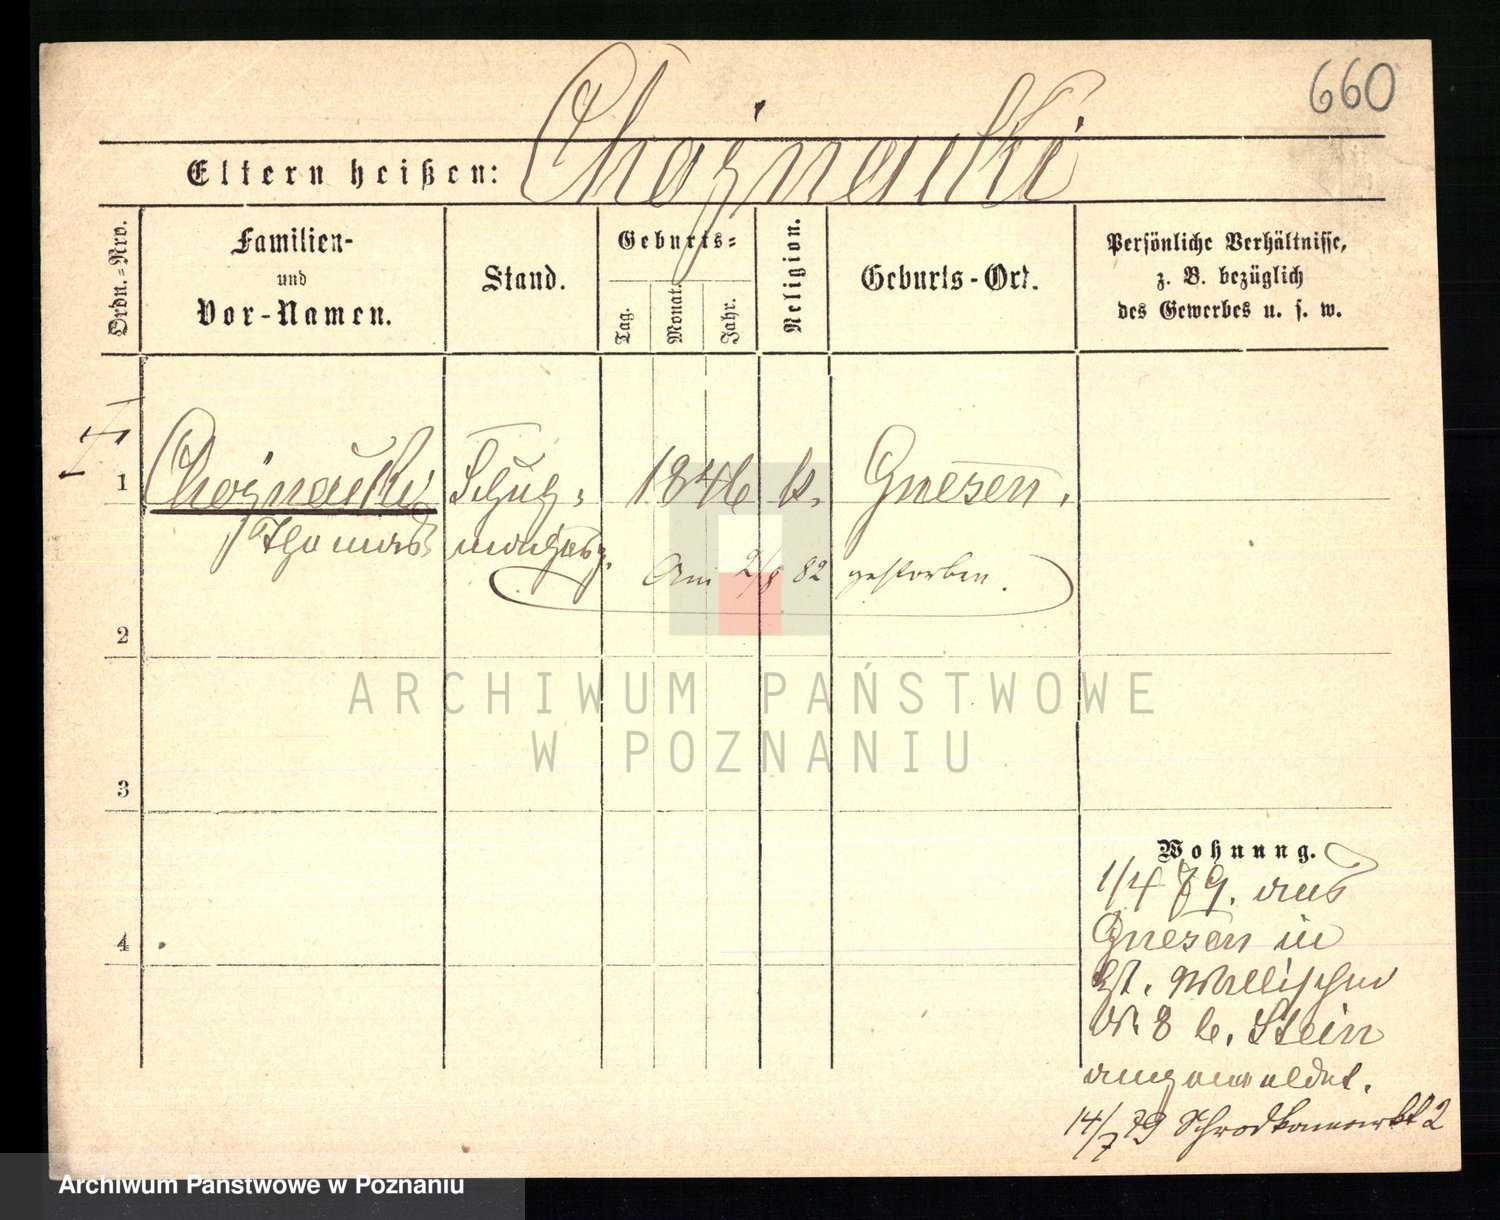 660
Eltern heißen: Choynacki
Ordn.-Nro.
Familien-
und
Vor-Namen.
Stand.
Geburts-
Tag.
Monat.
Jahr.
Religion.
Geburts-Ort.
Persönliche Verhältnisse,
z. B. bezüglich
des Gewerbes u. s. w.
1 Choynacki Schuh- 1846 k. Gnesen.
Thomas machergs.
Am 2/8 82 gestorben.
2
ARCHIWUM PAŃSTWOWE
W POZNANIU
3
Wohnung.
1/4 79. aus
4 Gnesen in
Wallischei
No. 8 b. Stein
angemeldet.
14/7 79 Schrodkamarkt 2
Archiwum Państwowe w Poznaniu